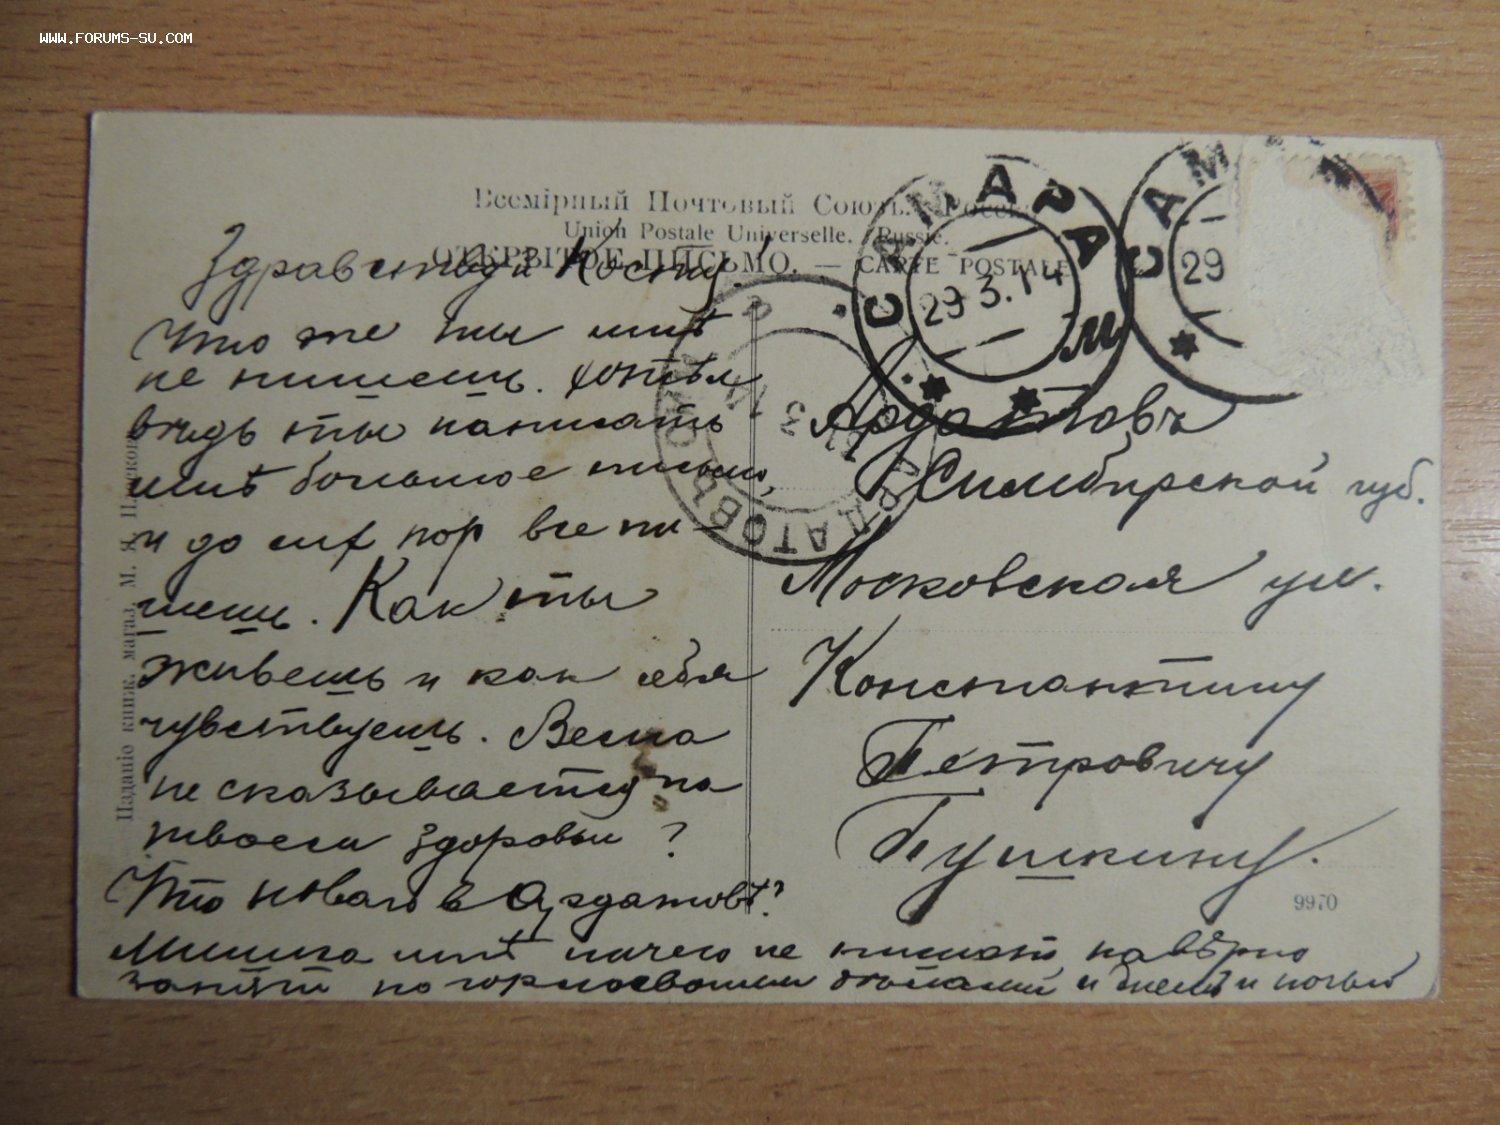 WWW.FORUMS-SU.COM
Всемірный Почтовый Союзъ. Россія.
Union Postale Universelle. Russie.
ОТКРЫТОЕ ПИСЬМО. — CARTE POSTALE
САМАРА
29 3.14
М
САМ
29
АРДАТОВЪ СИМБ
3 14
Здравствуй Костя!
Что же ты мнѣ
не пишешь. Хотѣл
вѣдь ты написать
мнѣ большое письмо,
и до сих пор все пи-
шешь. Как ты
живешь и как себя
чувствуешь. Весна
не сказывается на
твоем здоровьи?
Что новаго в Ардатовѣ?
Мишка мнѣ ничего не пишет навѣрно
занят и днем и ночью
Ардатовъ
Симбирской губ.
Московская ул.
Константину
Петровичу
Пушкину.
9970
Изданіе книж. магаз. М. Я.